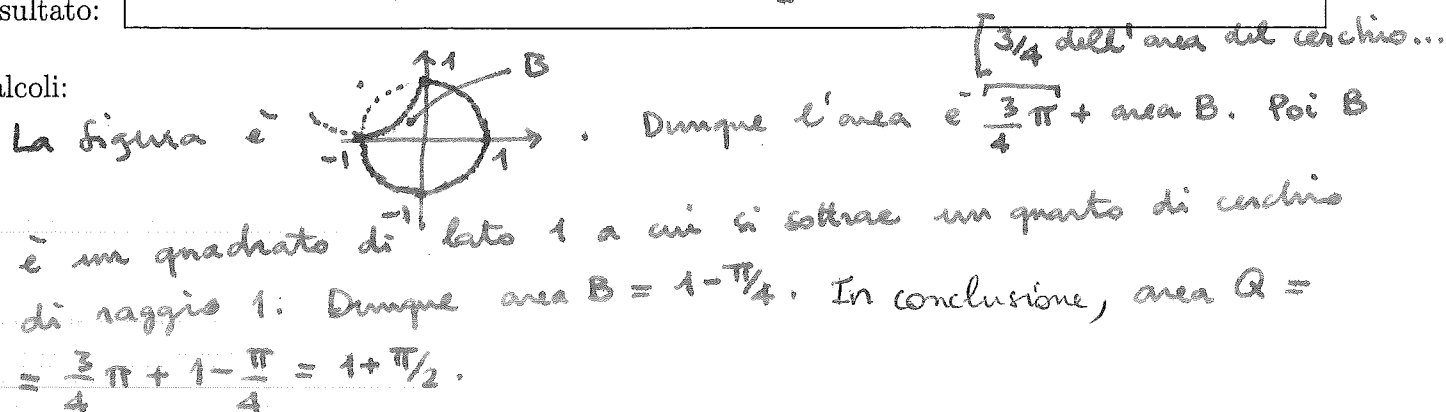 sultato:
[3/4 dell'area del cerchio...
alcoli:
1 B
La figura è -1 1 -1 . Dunque l'area è 3/4 π + area B. Poi B
è un quadrato di lato 1 a cui si sottrae un quarto di cerchio
di raggio 1. Dunque area B = 1 - π/4. In conclusione, area Q =
= 3/4 π + 1 - π/4 = 1 + π/2.